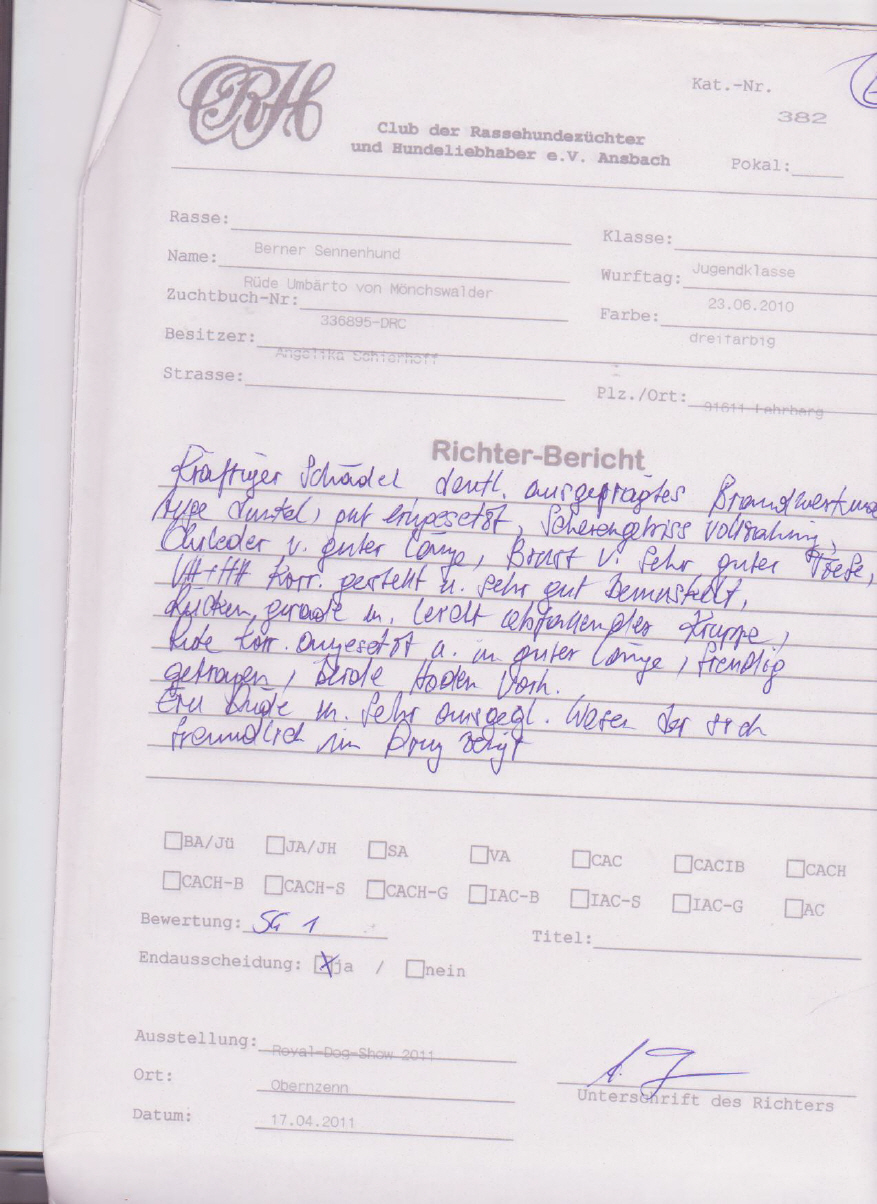 CRH
Kat.-Nr.
382
Club der Rassehundezüchter
und Hundeliebhaber e.V. Ansbach
Pokal:
Rasse:
Berner Sennenhund
Klasse:
Jugendklasse
Name:
Rüde Umbärto von Mönchswalder
Wurftag:
23.06.2010
Zuchtbuch-Nr:
336895-DRC
Farbe:
dreifarbig
Besitzer:
Angelika Schierhoff
Strasse:
Plz./Ort:
91611 Lehrberg
Richter-Bericht
Kräftiger Schädel deutl. ausgeprägtes
dunkel, gut eingesetzt, Scherengebiss vollzahnig,
v. guter Länge, Brust v. sehr guter Tiefe,
korr. gestellt u. sehr gut bemuskelt,
Rücken gerade m. leicht abfallender Kruppe,
Rute korr. angesetzt u. in guter Länge, freudig
getragen, beide Hoden vorh.
Ein Rüde m. sehr ausgegl. Wesen der sich
freundlich im Ring zeigt
BA/Jü JA/JH SA VA CAC CACIB CACH
CACH-B CACH-S CACH-G IAC-B IAC-S IAC-G AC
Bewertung: SG 1
Titel:
Endausscheidung: ja / nein
Ausstellung: Royal-Dog-Show 2011
Ort: Obernzenn
Unterschrift des Richters
Datum: 17.04.2011